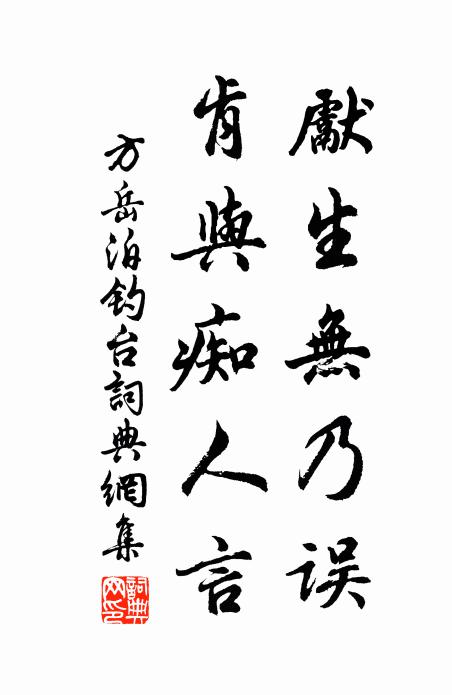 獻生無乃误
肯與痴人言
方岳泊钓台詞典網集
詞典網印